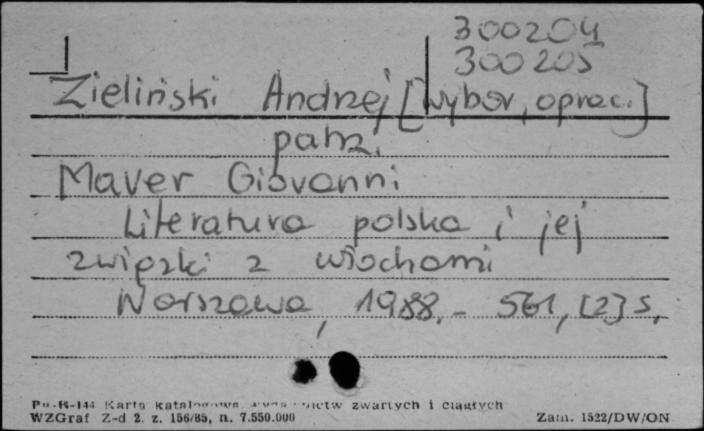 300204
300205
Zieliński Andrzej [wybór, oprac.]
patrz.
Maver Giovanni
Literatura polska i jej
związki z Włochami
Warszawa, 1988.- 561, [2] s.
Pu-B-144 Karta katalogowa wydawnictw zwartych i ciągłych
WZGraf Z-d 2. z. 156/85, n. 7.550.000
Zam. 1522/DW/ON